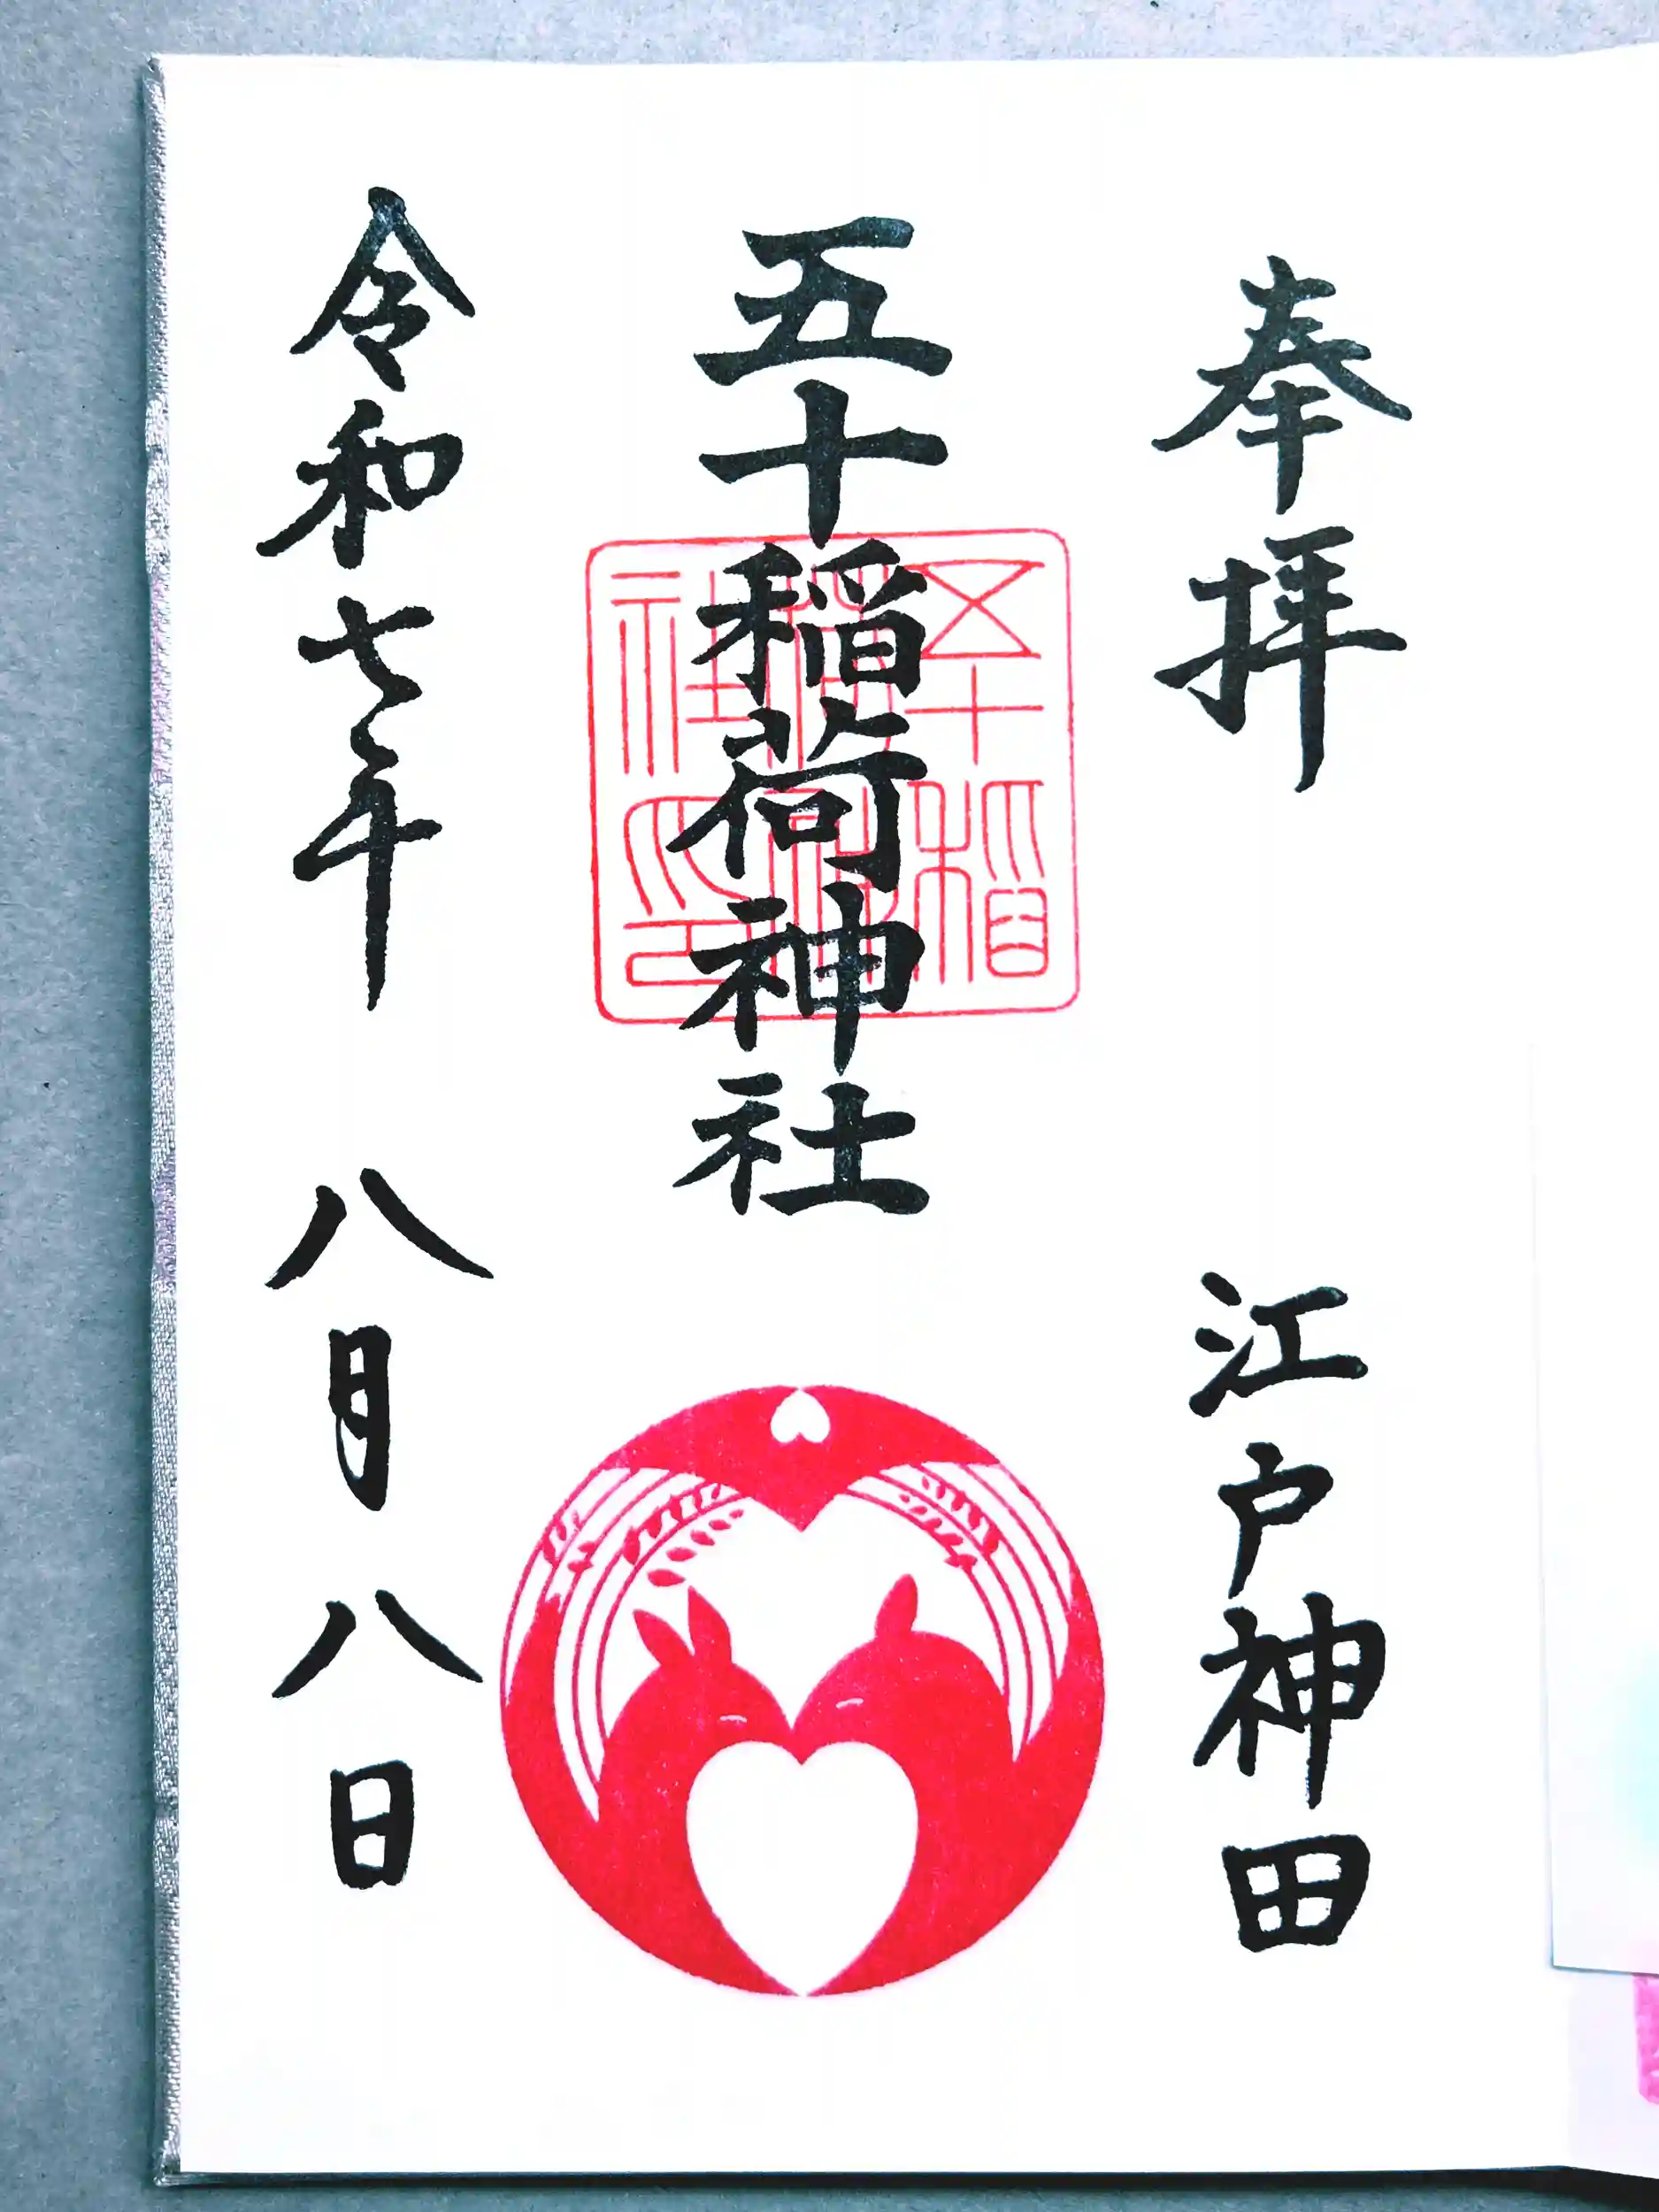 奉拝
江戸神田
五十稲荷神社
五十稲
荷神
社印
令和七年
八月八日